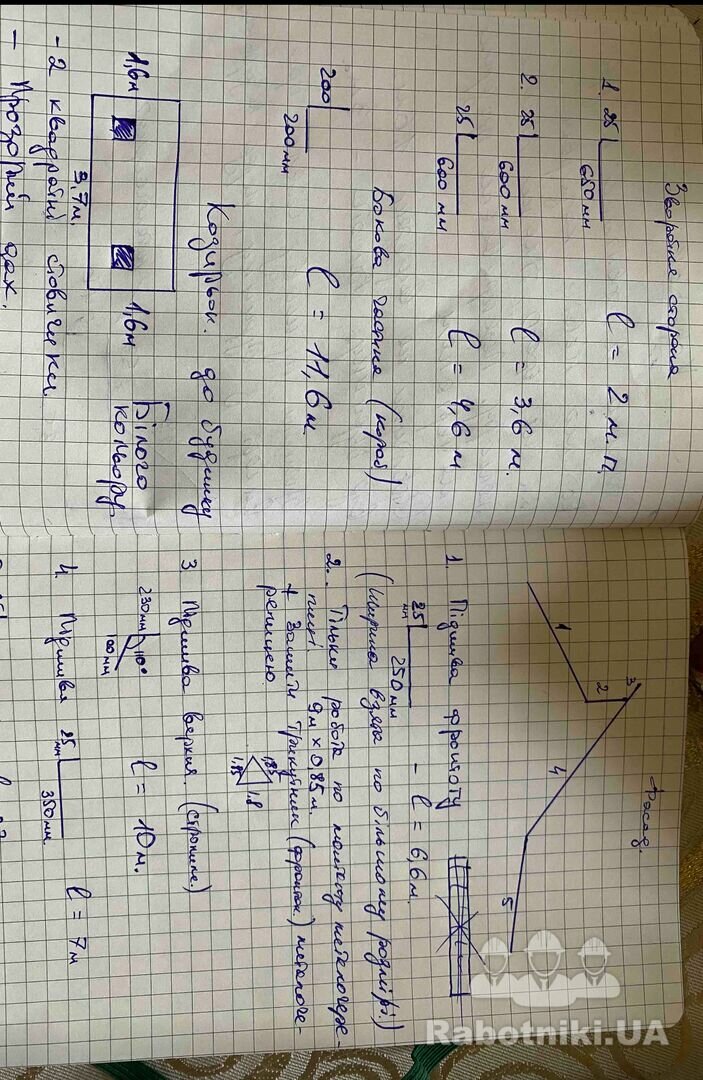 Зворотня сторона
1. 25
650 мм
l = 2 м.п.
2. 25
600 мм
l = 3,6 м.
25
600 мм
l = 4,6 м
Бокова частина (короб)
200
200 мм
l = 11,6 м.
Козирьок. до будинку
1,6 м
3,7 м.
1,6 м
Білого
кольору.
- 2 квадратні стовпчики
- Прозорий дах.
Фасад.
1
2
3
4
5
1. Підшива фронтону
25
мм
250 мм
- l = 6,6 м.
(Ширина взята по більшому розмірі.)
2. Тільки робота по монтажу металочере-
пиці 9 м х 0,85 м.
+ Зашити трикутник (фронтон) металоче-
репицею.
1,85
1,85
1,8
3 Підшива верхня. (стропила.)
230 мм
110°
100 мм
l = 10 м.
4. Підшивка
25
мм
350 мм.
l = 7 м
Rabotniki.UA